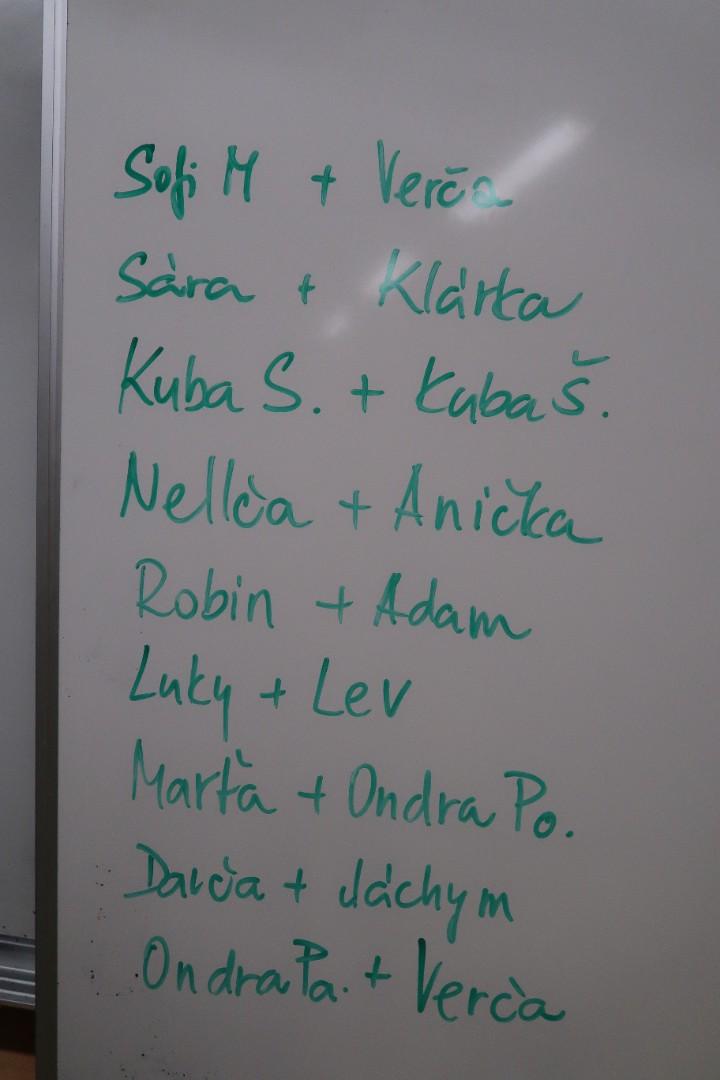 Sofi M + Verča
Sára + Klárka
Kuba S. + Kuba Š.
Nellča + Anička
Robin + Adam
Luky + Lev
Marťa + Ondra Po.
Davča + Jáchym
Ondra Pa. + Verča